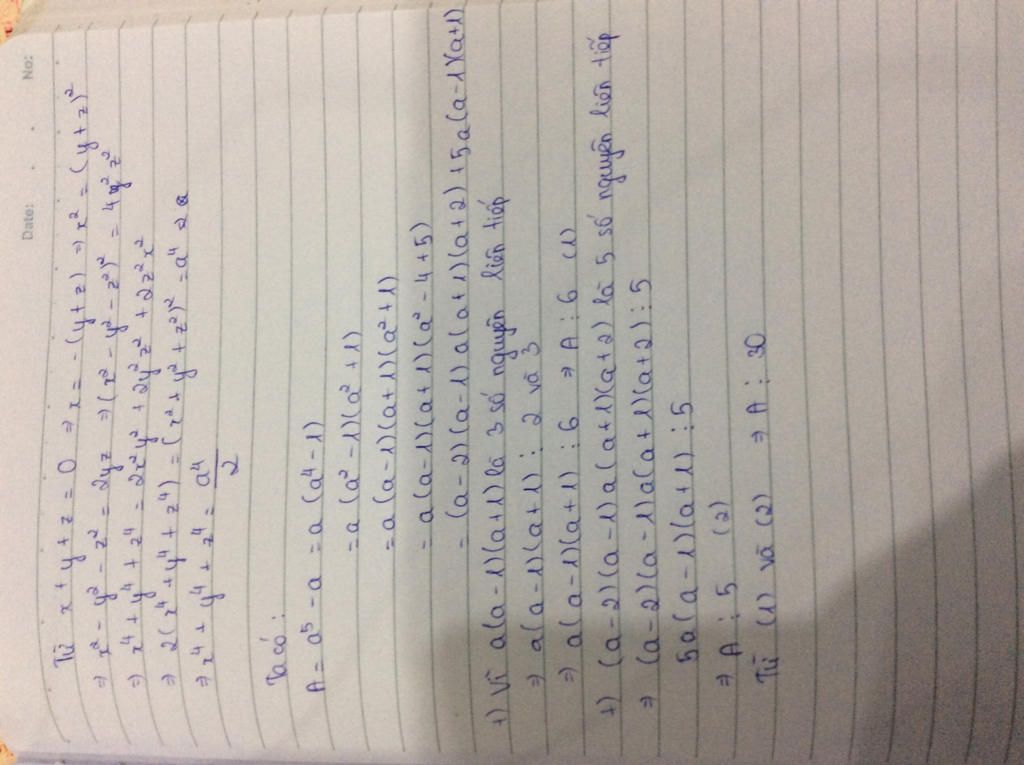 Date: No:
Từ x + y + z = 0 ⇒ x = -(y+z) ⇒ x² = (y+z)²
⇒ x² - y² - z² = 2yz ⇒ (x² - y² - z²)² = 4y²z²
⇒ x⁴ + y⁴ + z⁴ = 2x²y² + 2y²z² + 2z²x²
⇒ 2(x⁴ + y⁴ + z⁴) = (x² + y² + z²)² = a⁴
⇒ x⁴ + y⁴ + z⁴ = a⁴/2
Ta có:
A = a⁵ - a = a(a⁴ - 1)
= a(a² - 1)(a² + 1)
= a(a - 1)(a + 1)(a² + 1)
= a(a - 1)(a + 1)(a² - 4 + 5)
= (a - 2)(a - 1)a(a + 1)(a + 2) + 5a(a - 1)(a + 1)
+) Vì a(a - 1)(a + 1) là 3 số nguyên liên tiếp
⇒ a(a - 1)(a + 1) ⋮ 2 và 3
⇒ a(a - 1)(a + 1) ⋮ 6 ⇒ A ⋮ 6 (1)
+) (a - 2)(a - 1)a(a + 1)(a + 2) là 5 số nguyên liên tiếp
⇒ (a - 2)(a - 1)a(a + 1)(a + 2) ⋮ 5
5a(a - 1)(a + 1) ⋮ 5
⇒ A ⋮ 5 (2)
Từ (1) và (2) ⇒ A ⋮ 30